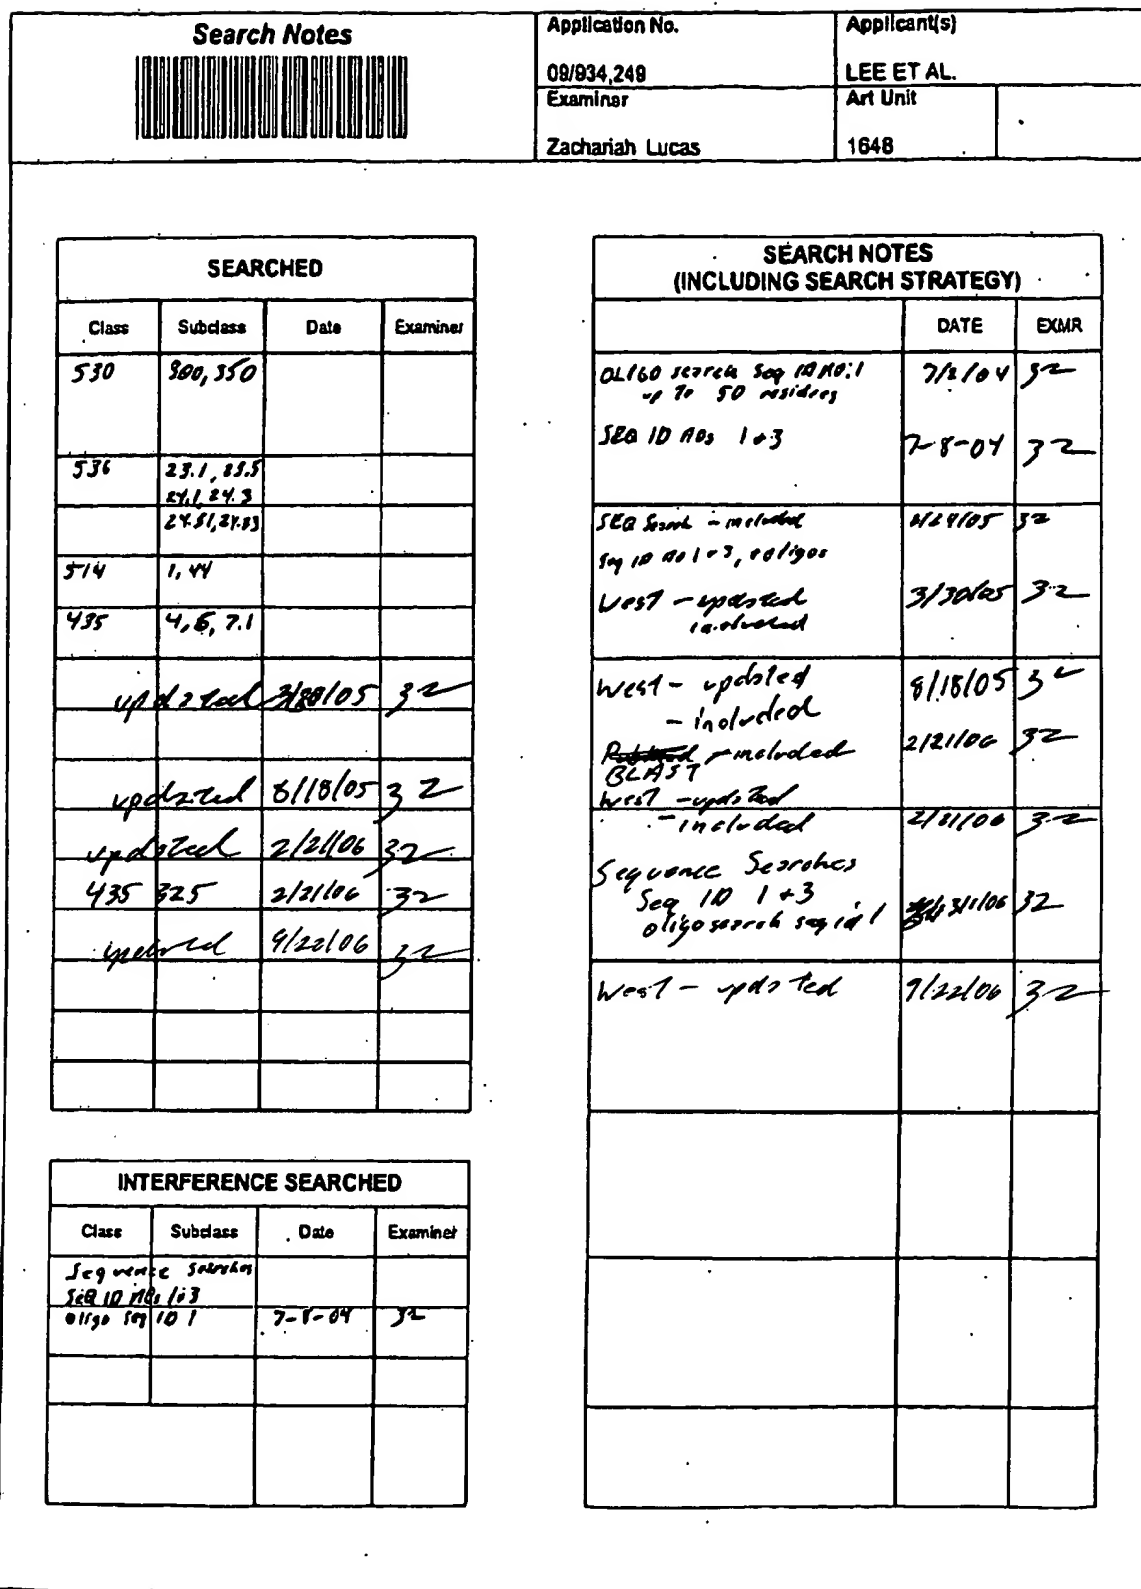 Search Notes
Application No.
09/934,249
Applicant(s)
LEE ET AL.
Examiner
Zachariah Lucas
Art Unit
1648
SEARCHED
Class Subclass Date Examiner
530 300, 350
536 23.1, 23.5
24.1, 24.3
24.31, 24.33
514 1, 44
435 4, 6, 7.1
updated 3/30/05 32
updated 8/18/05 32
updated 2/21/06 32
435 325 2/21/06 32
updated 9/22/06 32
INTERFERENCE SEARCHED
Class Subclass Date Examiner
Sequence Searches
SEQ ID NOs 1+3
oligo Seq ID 1 7-8-04 32
SEARCH NOTES
(INCLUDING SEARCH STRATEGY)
DATE EXMR
OLIGO search Seq ID NO:1 7/2/04 32
up to 50 residues
SEQ ID NOs 1+3 7-8-04 32
SEQ Search - included 32
Seq ID No 1+3, +oligos
West - updated 3/30/05 32
included
West - updated 8/18/05 32
- included
- included 2/21/06 32
BLAST
West - updated
- included 2/21/06 32
Sequence Searches
Seq ID 1+3
oligo search seq id 1 3/1/06 32
West - updated 9/22/06 32